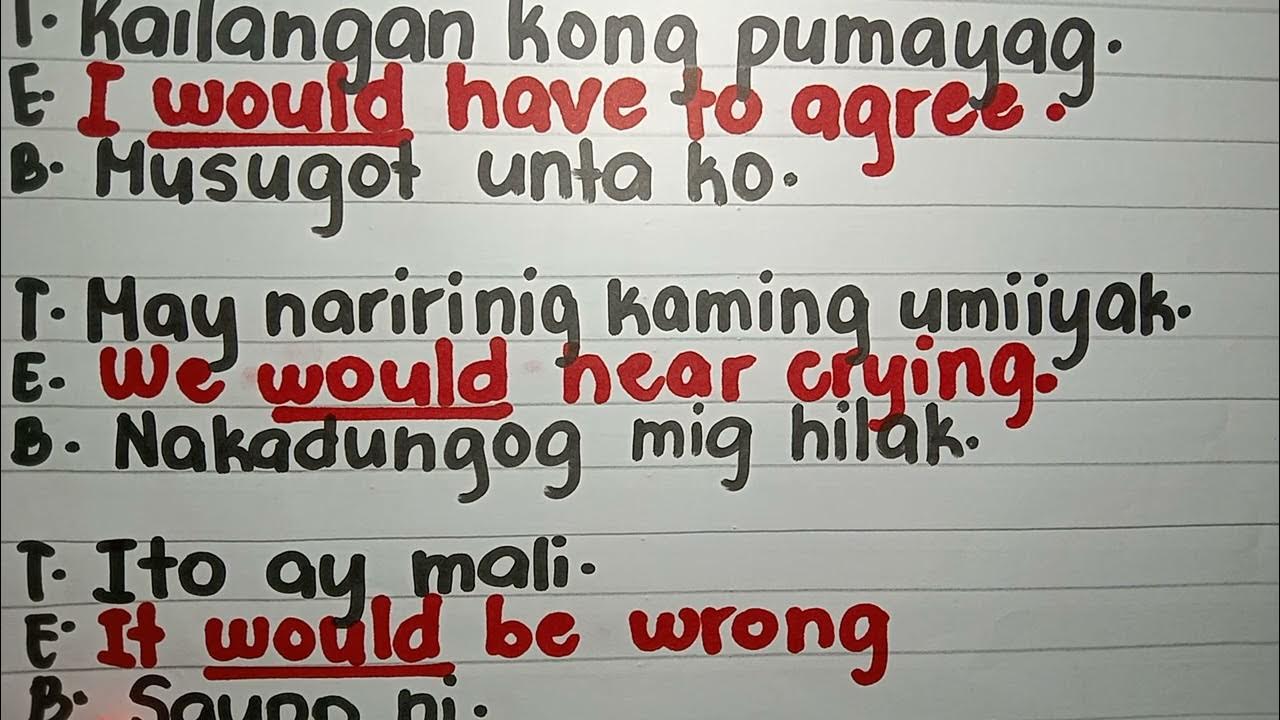 T. Kailangan kong pumayag.
E. I would have to agree.
B. Musugot unta ko.
T. May naririnig kaming umiiyak.
E. We would hear crying.
B. Nakadungog mig hilak.
T. Ito ay mali.
E. It would be wrong
B. Sayop ni.